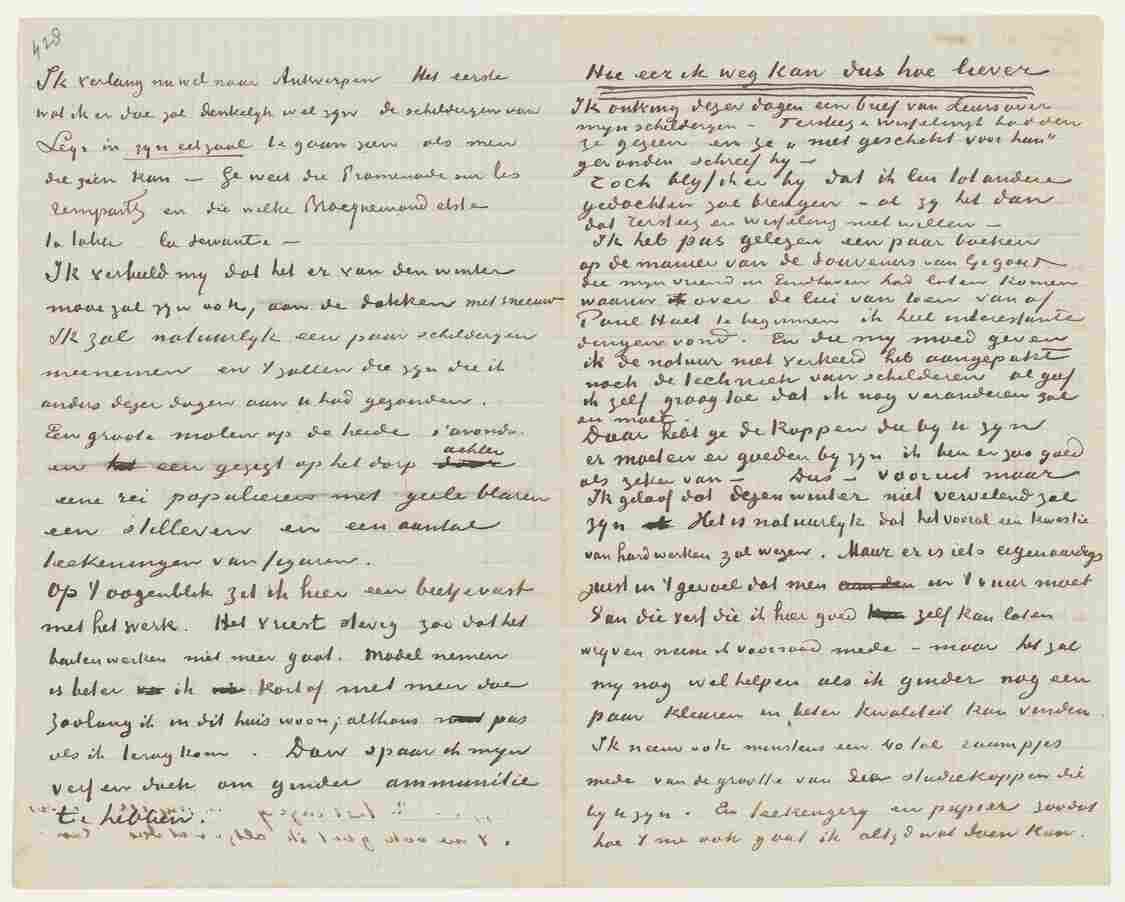 428
Ik verlang nu wel naar Antwerpen Het eerste
wat ik er doe zal denkelijk wel zijn de schilderijen van
Leys in zijn eetzaal te gaan zien als men
die zien kan – Ge weet die Promenade sur les
remparts en die welke Bracquemond etste
la table la servante –
Ik verbeeld mij dat het er van den winter
mooi zal zijn ook, aan de dokken met sneeuw
Ik zal natuurlijk een paar schilderijen
meenemen en 't zullen die zijn die ik
anders dezer dagen aan u had gezonden.
Een groote molen op de heide s'avonds.
en het een gezigt op het dorp door achter
eene rei populieren met geele blaren
een stilleven en een aantal
teekeningen van figuren.
Op 't oogenblik zit ik hier een beetje vast
met het werk. Het vriest stevig zoo dat het
buiten werken niet meer gaat. Model nemen
is beter ik kort of niet meer doe
zoolang ik in dit huis woon; althans pas
als ik terug kom. Dan spaar ik mijn
verf en doek om ginder ammunitie
te hebben.
Hoe eer ik weg kan dus hoe liever
Ik ontving dezer dagen een brief van Leurs over
mijn schilderijen – Tersteeg & Wisselingh hadden
ze gezien en ze „niet geschikt voor hun"
gevonden schreef hij –
Toch blijf ik er bij dat ik lui tot andere
gedachten zal brengen – al zij het dan
dat Tersteeg en Wisselingh niet willen –
Ik heb pas gelezen een paar boeken
op de manier van de Souvenirs van Gigoux
die mijn vriend in Eindhoven had laten komen
waarin ik over de lui van toen van af
Paul Huet te beginnen ik heel interessante
dingen vond. En die mij moed geven
ik de natuur niet verkeerd heb aangepakt
noch de techniek van schilderen al geef
ik zelf graag toe dat ik nog veranderen zal
en moet.
Daar hebt ge de koppen die bij u zijn
er moeten er goeden bij zijn ik ben er zoo goed
als zeker van – Dus – vooruit maar
Ik geloof dat dezen winter niet vervelend zal
zijn Het is natuurlijk dat het vooral een kwestie
van hard werken zal wezen. Maar er is iets eigenaardigs
juist in 't gevoel dat men aan den in 't vuur moet
Van die verf die ik hier goed zelf kan laten
wrijven neem ik voorraad mede – maar het zal
mij nog wel helpen als ik ginder nog een
paar kleuren in beter kwaliteit kan vinden.
Ik neem ook minstens een 40 tal raampjes
mede van de grootte van studiekoppen die
bij u zijn. En teekengerij en papier zoodat
hoe 't me ook gaat ik altijd wat doen kan.